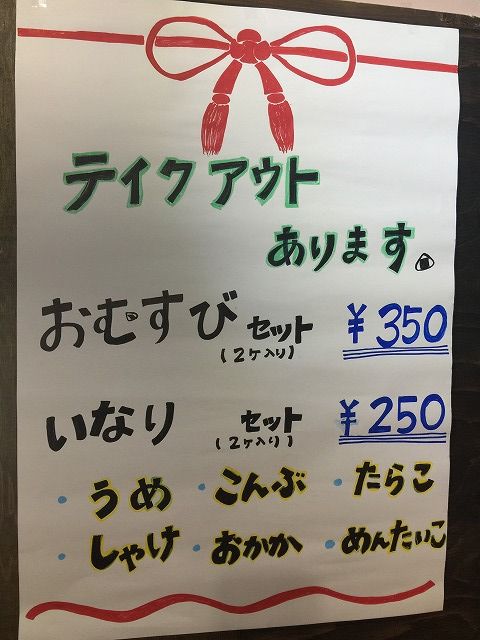 テイクアウト
あります。
おむすび セット ¥350
(2ヶ入り)
いなり セット ¥250
(2ヶ入り)
・うめ ・こんぶ ・たらこ
・しゃけ ・おかか ・めんたいこ